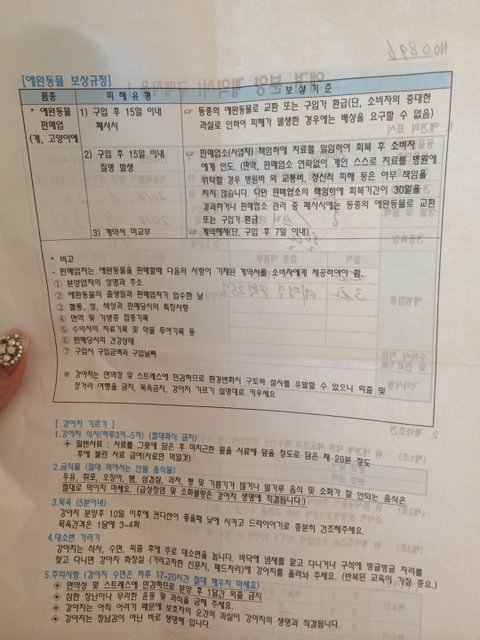 No 0896
[애완동물 보상규정]
품종 피해유형 보상기준
* 애완동물 판매업 (개, 고양이에
1) 구입 후 15일 이내 폐사시
☞ 동종의 애완동물로 교환 또는 구입가 환급(단, 소비자의 중대한
과실로 인하여 피해가 발생한 경우에는 배상을 요구할 수 없음)
2) 구입 후 15일 이내 질병 발생
☞ 판매업소(사업자) 책임하에 치료를 일임하여 회복 후 소비자
에게 인도. (만약, 판매업소 연락없이 개인 스스로 치료를 병원에
위탁할 경우 병원비 외 교통비, 정신적 피해 등은 아무 책임을
지지 않습니다. 다만 판매업소의 책임하에 회복기간이 30일을
경과하거나 판매업소 관리 중 폐사시에는 동종의 애완동물로 교환
또는 구입가 환급
3) 계약서 미교부
☞ 계약해제(단, 구입 후 7일 이내)
* 비고
- 판매업자는 애완동물을 판매할때 다음의 사항이 기재된 계약서를 소비자에게 제공하여야 함.
① 분양업자의 성명과 주소
② 애완동물의 출생일과 판매업자가 입수한 날
③ 혈통, 성, 색상과 판매당시의 특징사항
④ 면역 및 기생충 접종기록
⑤ 수의사의 치료기록 및 약물 투여기록 등
⑥ 판매당시의 건강상태
⑦ 구입시 구입금액과 구입날짜
※ 강아지는 면역성 및 스트레스에 민감하므로 환경변화시 구토와 설사를 유발할 수 있으니 외출 및
장거리 여행을 금지, 목욕금지, 강아지 기르기 설명대로 키우세요
[ 강아지 기르기 ]
1.강아지 식사(하루3끼~5끼) (절대과식 금지)
◈ 일반사료 : 사료를 그릇에 담은 후 미지근한 물을 사료에 닿을 정도로 담은 채 20분 정도
후에 불린 사료 급여(사료만 먹일것)
2.금식물 (절대 먹여서는 안될 음식물)
우유, 쥐포, 오징어, 햄, 삼겹살, 과자, 빵 및 기름기가 많거나 밀가루 음식 및 소화가 잘 안되는 음식은
절대로 먹이지 마세요. (급성장염 및 소화불량은 강아지 생명에 직결됩니다.)
3.목욕 (5분이내)
강아지 분양후 10일 이후에 컨디션이 좋을때 낮에 시키고 드라이어기로 충분히 건조해주세요.
목욕간격은 1달에 3~4회.
4.대소변 가리기
강아지는 식사, 수면, 외출 후에 주로 대소변을 눕니다. 바닥에 냄새를 맡고 다니거나 구석에 빙글빙글 자리를
찾고 다니면 강아지 화장실 (가려고자한 신문지, 패드자리)에 강아지를 올려놔 주세요. (반복된 교육이 가장 중요.)
5.주의사항 (강아지 수면은 하루 17-20시간 절대 깨우지 마세요)
◈ 면역성 및 스트레스에 민감하므로 분양 후 1달간 외출 금지
◈ 심한 장난이나 무리한 운동 및 과식을 금해 주세요.
◈ 강아지는 아직 어리기 때문에 보호자의 순간의 과실이 강아지의 생명과 직결됩니다.
◈ 강아지는 장난감이 아닌 바로 생명체 입니다.